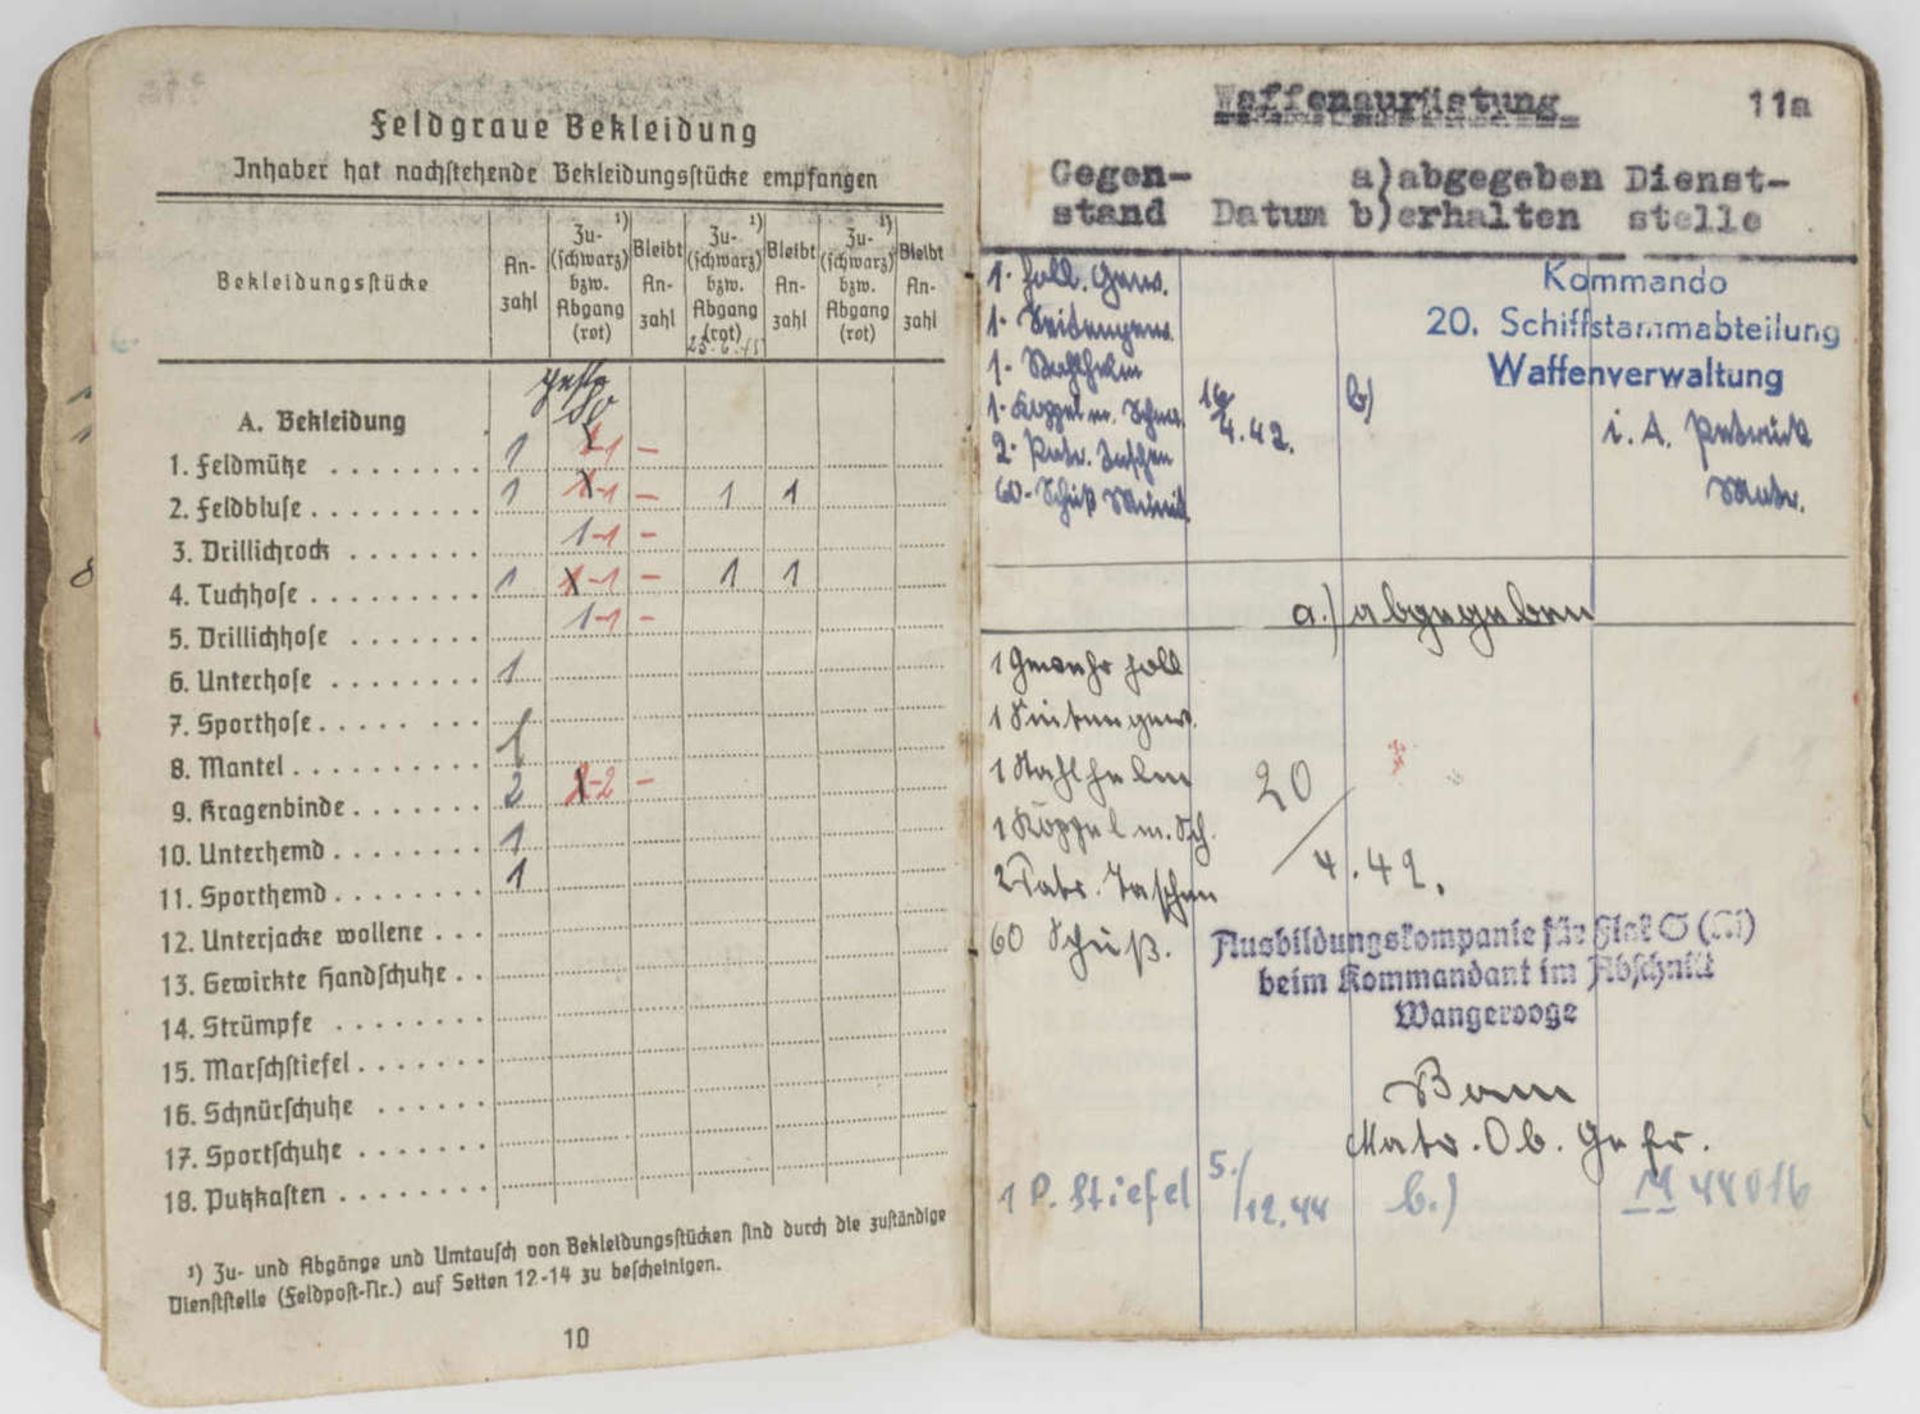 Feldgraue Bekleidung
Inhaber hat nachstehende Bekleidungsstücke empfangen
Bekleidungsstücke
An-
zahl
Zu- ¹)
(schwarz)
bzw.
Abgang
(rot)
Bleibt
An-
zahl
Zu- ¹)
(schwarz)
bzw.
Abgang
(rot)
Bleibt
An-
zahl
Zu- ¹)
(schwarz)
bzw.
Abgang
(rot)
Bleibt
An-
zahl
A. Bekleidung
1. Feldmütze . . . . . . . . 1 -1 -
2. Feldbluse . . . . . . . . . 1 -1 - 1 1
3. Drillichrock . . . . . . . 1 -1 -
4. Tuchhose . . . . . . . . . 1 -1 - 1 1
5. Drillichhose . . . . . . . 1 -1 -
6. Unterhose . . . . . . . . 1
7. Sporthose . . . . . . . .
8. Mantel . . . . . . . . . . 1
9. Kragenbinde . . . . . . . 2 -2 -
10. Unterhemd . . . . . . . . 1
11. Sporthemd . . . . . . . . 1
12. Unterjacke wollene . . .
13. Gewirkte Handschuhe . .
14. Strümpfe . . . . . . . .
15. Marschstiefel . . . . . . .
16. Schnürschuhe . . . . . .
17. Sportschuhe . . . . . . .
18. Putzkasten . . . . . . . .
¹) Zu- und Abgänge und Umtausch von Bekleidungsstücken sind durch die zuständige
Dienststelle (Feldpost-Nr.) auf Seiten 12-14 zu bescheinigen.
10
Waffenaurüstung 11a
Gegen- a)abgegeben Dienst-
stand Datum b)erhalten stelle
Kommando
20. Schiffstammabteilung
Waffenverwaltung
1. holl. Gew.
1. Seitengew.
1. Stahlhelm
1. Koppel m. Schl.
2. Patr. Taschen
60. Schuß Munit.
16/4.42. b)
i. A.
Matr.
a.) abgegeben
1 Gewehr holl
1 Seitengew.
1 Stahlhelm
1 Koppel m. Sch.
2 Patr. Taschen
60 Schuß.
20/4.42.
Ausbildungskompanie für Flak
beim Kommandant im Abschnitt
Wangerooge
Matr. Ob. Gefr.
1 P. Stiefel 5./12.44 b.) M 44016